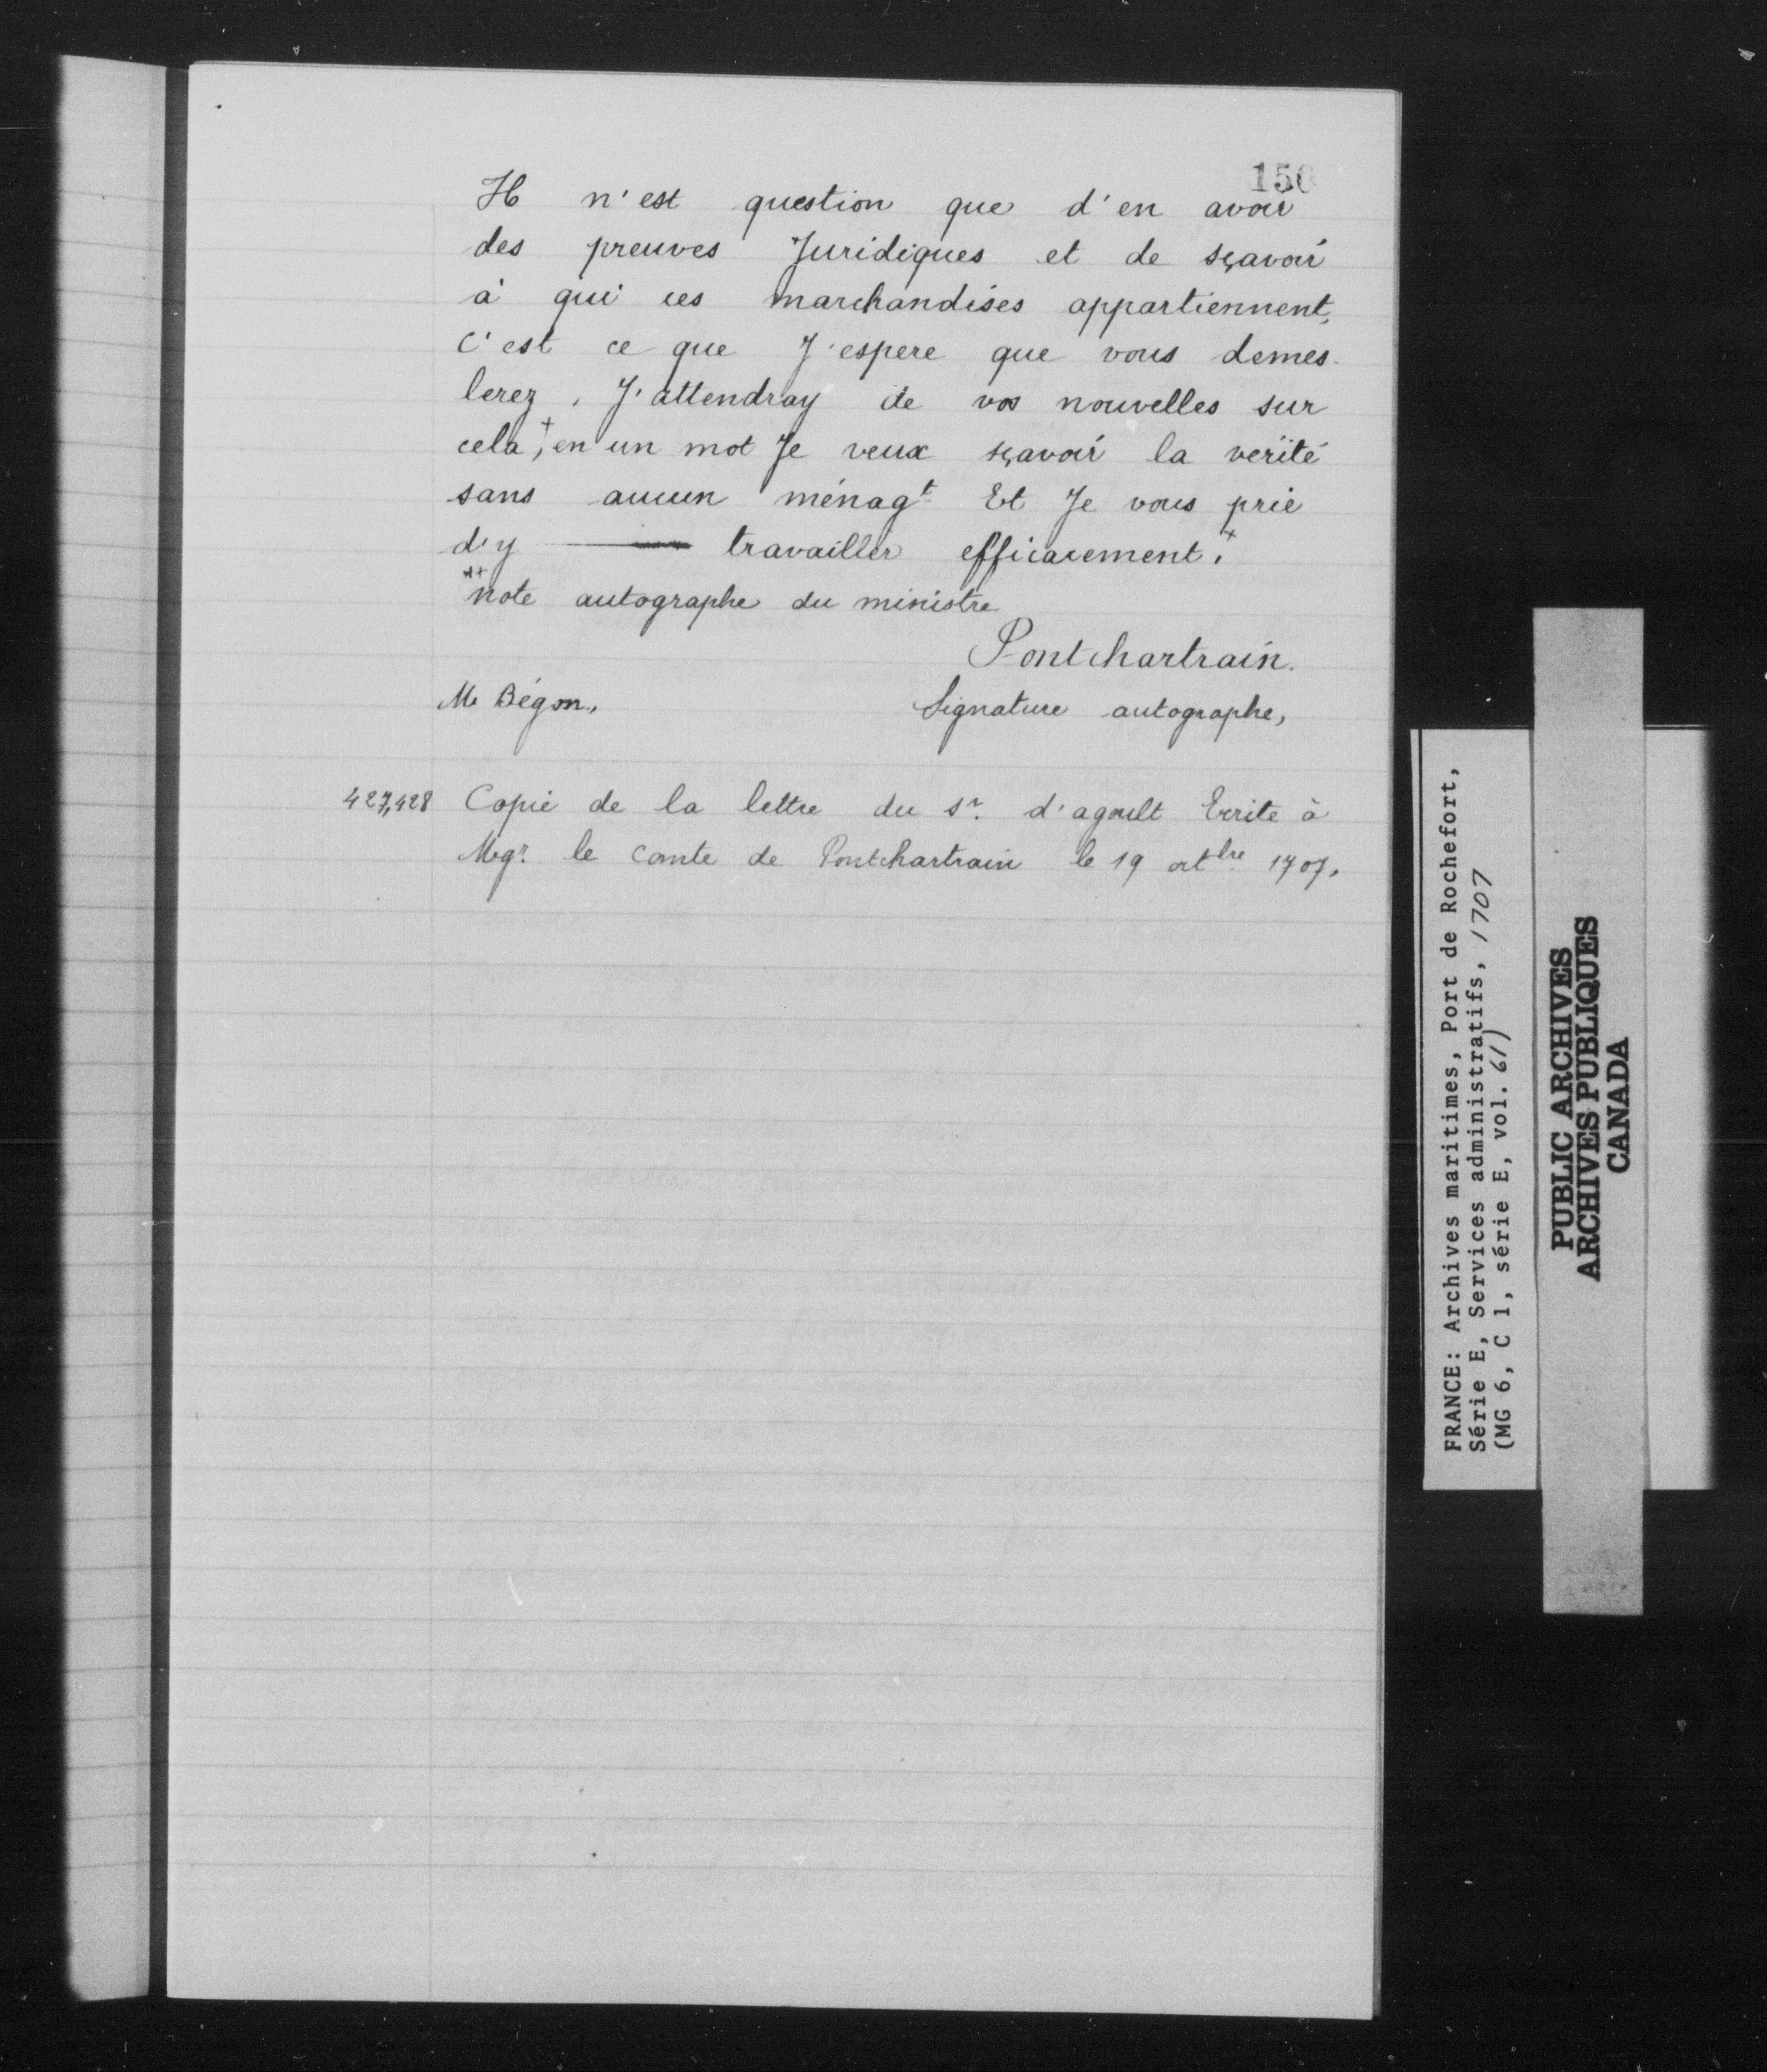 150
Il n'est question que d'en avoir
des preuves Juridiques et de sçavoir
à qui ces marchandises appartiennent,
c'est ce que J'espere que vous demes-
lerez. J'attendray de vos nouvelles sur
cela,+ en un mot Je veux sçavoir la verité
sans aucun ménagt Et Je vous prie
d'y travailler efficacement.+
++ note autographe du ministre
Pontchartrain.
M Bégon,
Signature autographe,
427,428 Copie de la lettre du Sr. d'agoult Ecrite à
Mgr. le Comte de Pontchartrain le 19 octbre 1707.
FRANCE: Archives maritimes, Port de Rochefort,
Série E, Services administratifs, 1707
(MG 6, C 1, série E, vol. 61)
PUBLIC ARCHIVES
ARCHIVES PUBLIQUES
CANADA